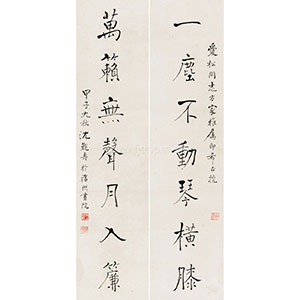 愛松同志方家雅屬即希正挽
一塵不動琴橫膝
萬籟無聲月入簾
甲子九秋沈觀壽於滬燃書院